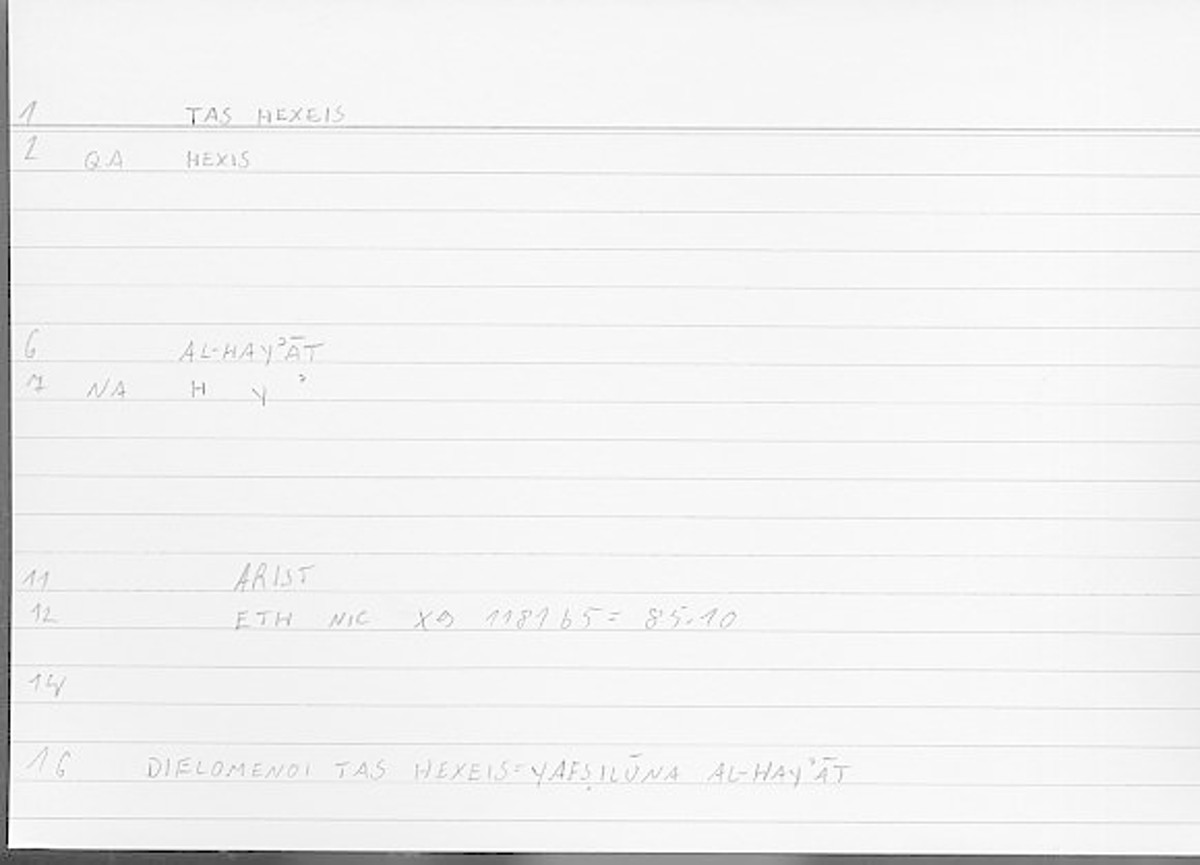 1 TAS HEXEIS
2 QA HEXIS
6 AL-HAYʾĀT
7 NA H Y ʾ
11 ARIST
12 ETH NIC X9 1181b5= 85.10
14
16 DIELOMENOI TAS HEXEIS=YAFṢILŪNA AL-HAYʾĀT